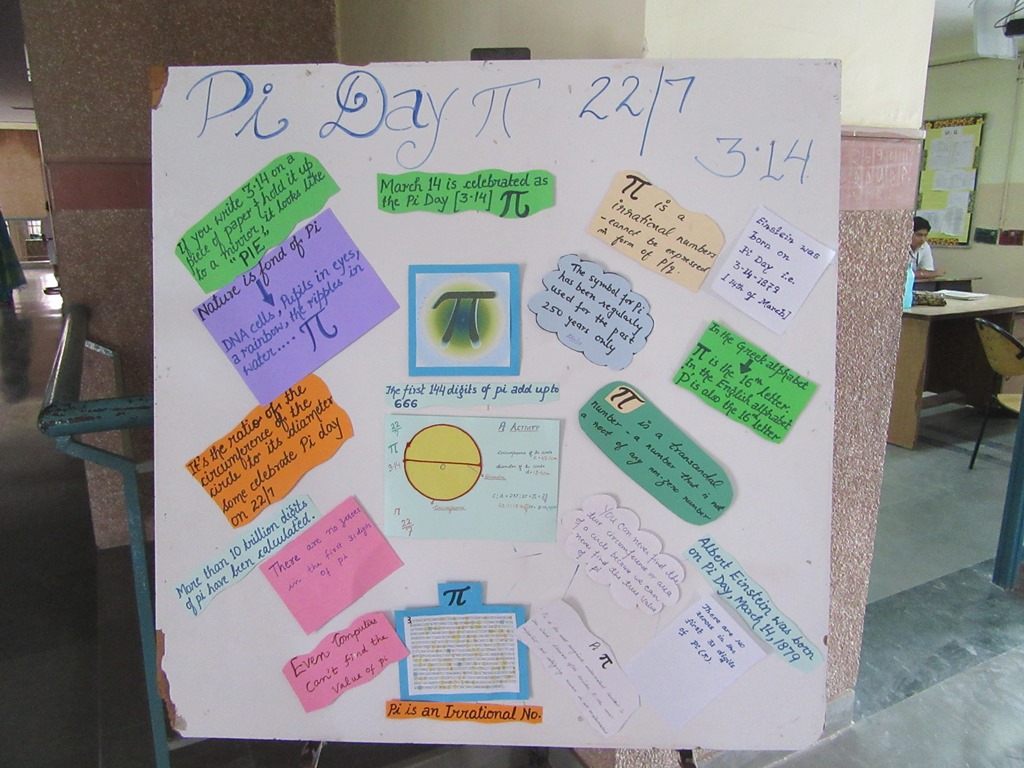 Pi Day π 22/7
3.14
If you write 3.14 on a
piece of paper & hold it up
to a mirror, it looks like
"PIE"
March 14 is celebrated as
the Pi Day [3.14] π
π is a
irrational numbers
- cannot be expressed
in form of P/q.
Einstein was
born on
Pi Day i.e.
3.14.1879
14th of March]
Nature is fond of Pi
DNA cells, Pupils in eyes,
a rainbow, the ripples in
water....
π
π
The symbol for Pi
has been regularly
used for the past
250 years only
In the Greek alphabet
π is the 16th letter.
in the English alphabet
P is also the 16th letter
The first 144 digits of pi add up to
666
It's the ratio of the
circumference of the
circle to its diameter
some celebrate Pi day
on 22/7
22/7
π
3.14
π
22/7
A Activity
Circumference
π is a transcendal
number - a number that is not
a root of any non zero number
More than 10 billion digits
of pi have been calculated.
There are no zeroes
in the first 31 digits
of pi
You can never find the
true circumference or area
of a circle because we can
never find the true value
of pi
Albert Einstein was born
on Pi Day, March 14, 1879
There are no
zeroes in the
first 31 digits
of pi (π).
Even Computers
Can't find the
value of pi
π
3
A π
Pi is an Irrational No.